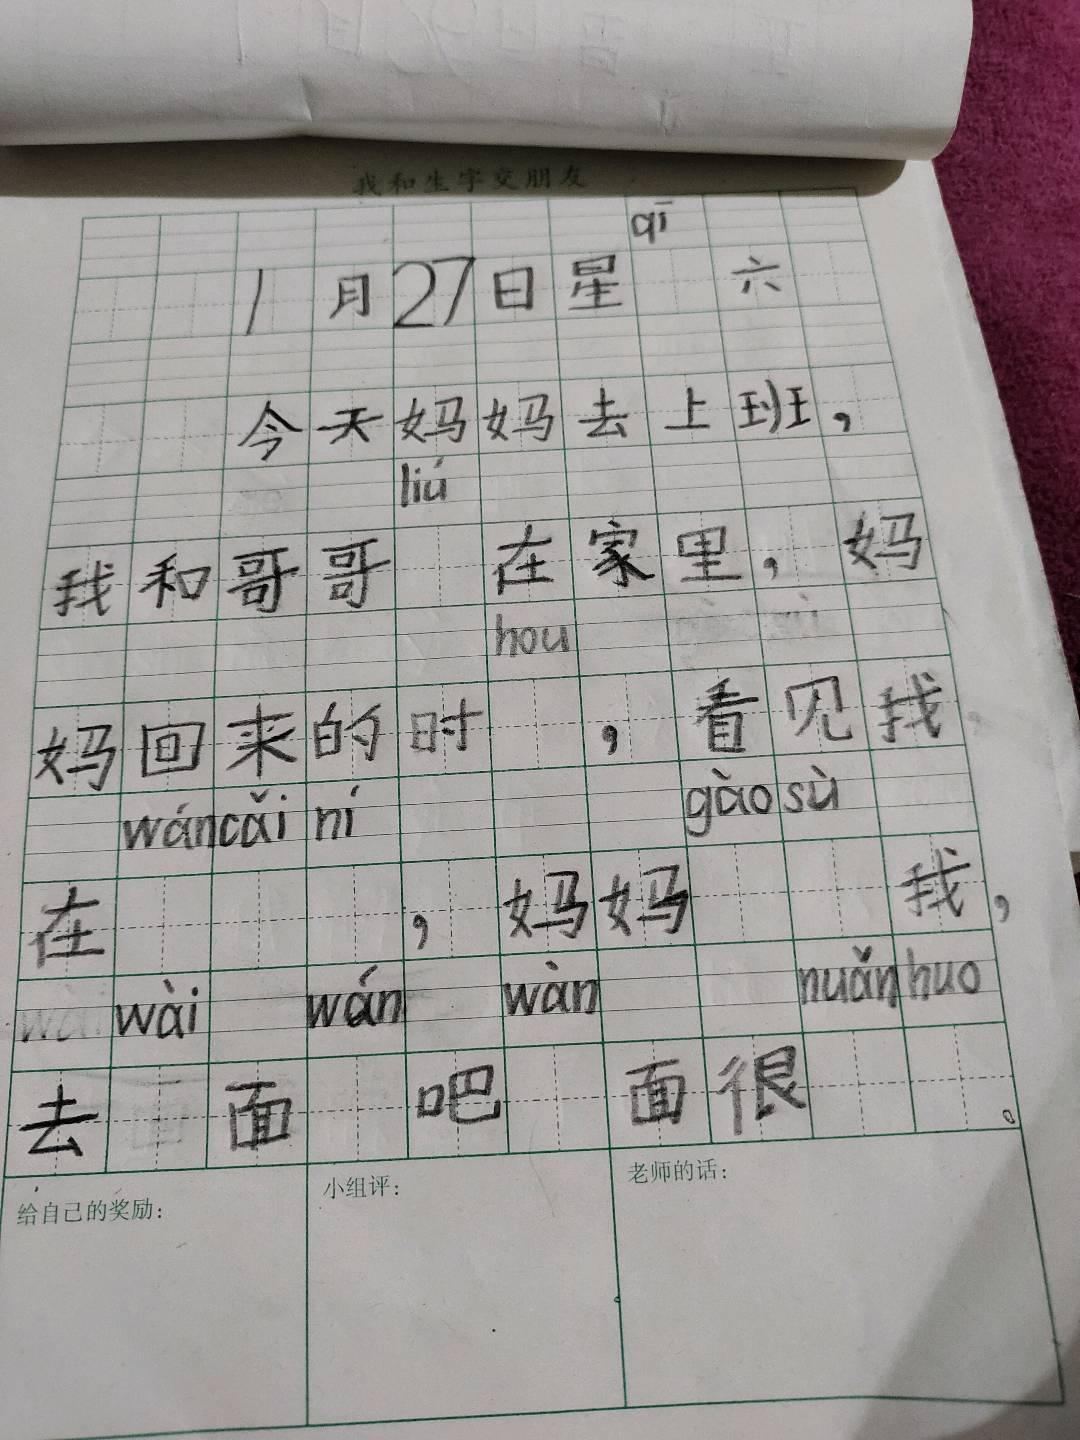 我和生字交朋友
qī
1月27日星 六
今天妈妈去上班，
liú
我和哥哥 在家里，妈
hou
妈回来的时 ，看见我
wán cǎi ní gào sù
在 ，妈妈 我，
wài wán wàn nuǎn huo
去 面 吧 面很 。
给自己的奖励： 小组评： 老师的话：